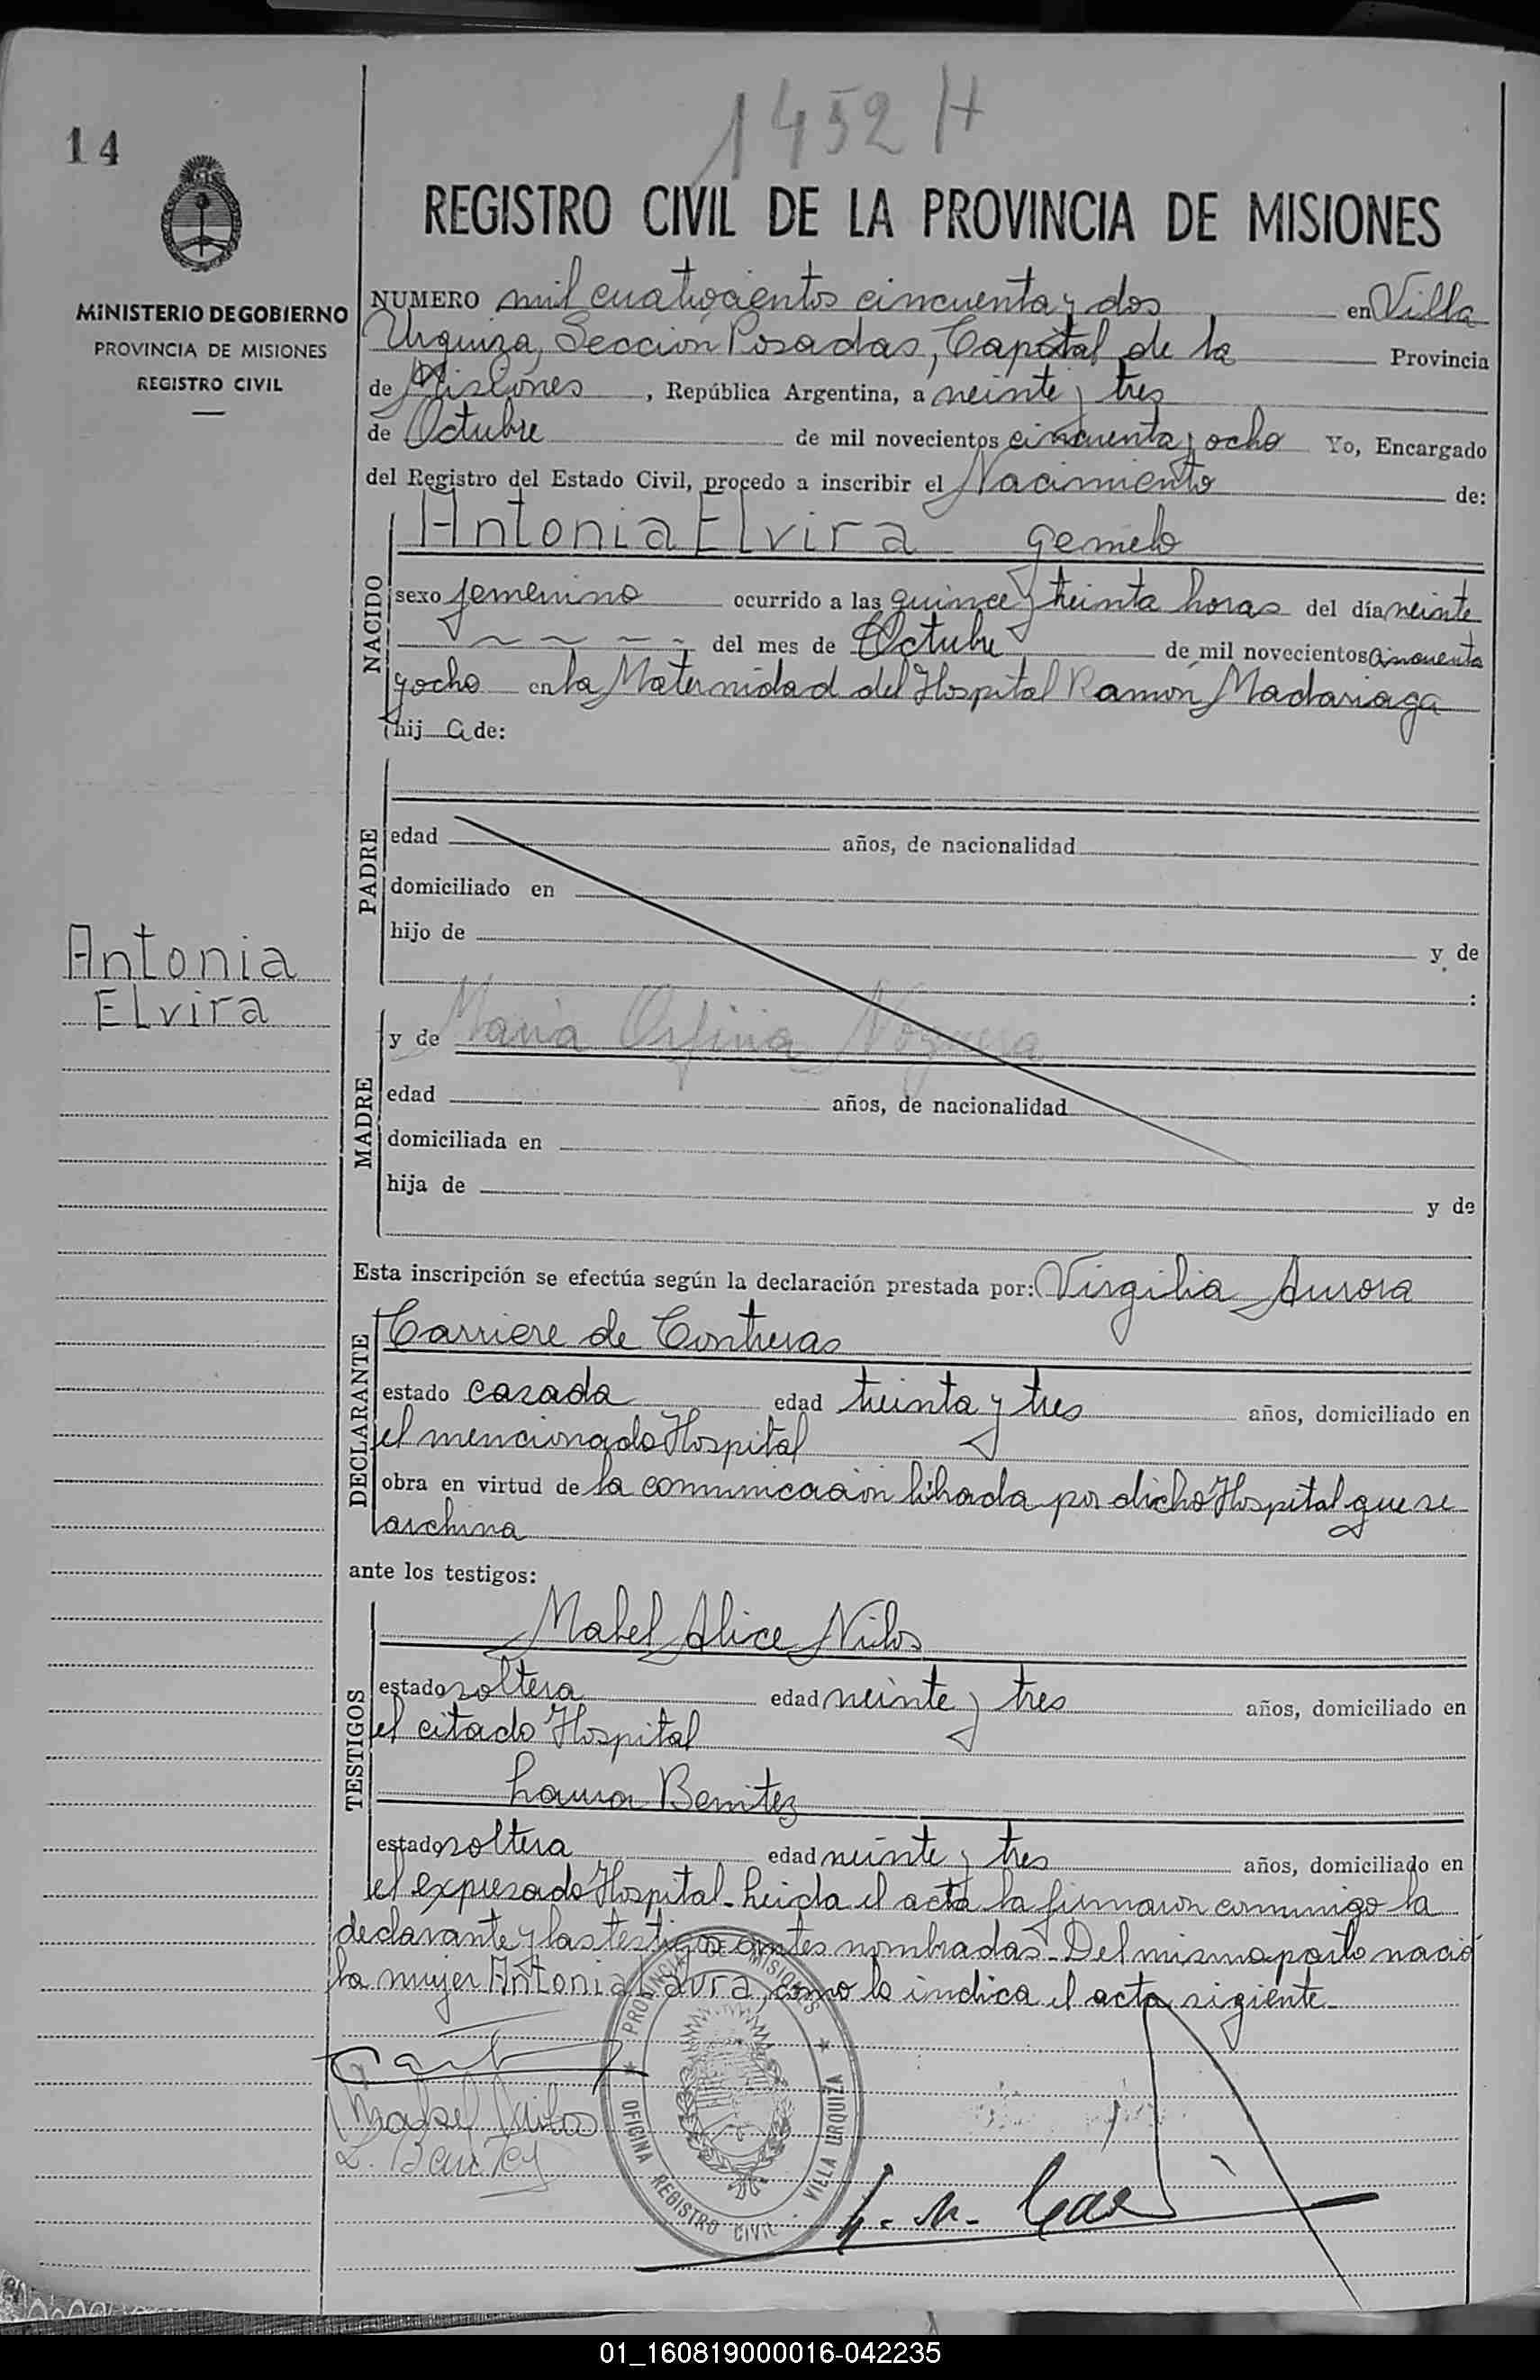 1452 H
14
REGISTRO CIVIL DE LA PROVINCIA DE MISIONES
MINISTERIO DE GOBIERNO
PROVINCIA DE MISIONES
REGISTRO CIVIL
NUMERO mil cuatrocientos cincuenta y dos en Villa
Urquiza, Sección Posadas, Capital de la Provincia
de Misiones, República Argentina, a veinte y tres
de Octubre de mil novecientos cincuenta y ocho Yo, Encargado
del Registro del Estado Civil, procedo a inscribir el Nacimiento de:
Antonia Elvira gemelo
NACIDO
sexo femenino ocurrido a las quince y treinta horas del día veinte
del mes de Octubre de mil novecientos cincuenta
y ocho en la Maternidad del Hospital Ramón Madariaga
hij a de:
PADRE
edad años, de nacionalidad
domiciliado en
hijo de y de
:
Antonia
Elvira
MADRE
y de Maria Orfina Noguera
edad años, de nacionalidad
domiciliada en
hija de y de
Esta inscripción se efectúa según la declaración prestada por: Virgilia Aurora
DECLARANTE
Carriere de Contreras
estado casada edad treinta y tres años, domiciliado en
el mencionado Hospital
obra en virtud de la comunicación librada por dicho Hospital que se
archiva
ante los testigos:
TESTIGOS
Mabel Alice Nilos
estado soltera edad veinte y tres años, domiciliado en
el citado Hospital
Laura Benitez
estado soltera edad veinte y tres años, domiciliado en
el expresado Hospital. Leida el acta la firmaron conmigo la
declarante y las testigos antes nombradas. Del mismo parto nació
la mujer Antonia Laura, como lo indica el acta sigiente.
Mabel Nilos
L. Benitez
PROVINCIA DE MISIONES
OFICINA REGISTRO CIVIL VILLA URQUIZA
01_160819000016-042235